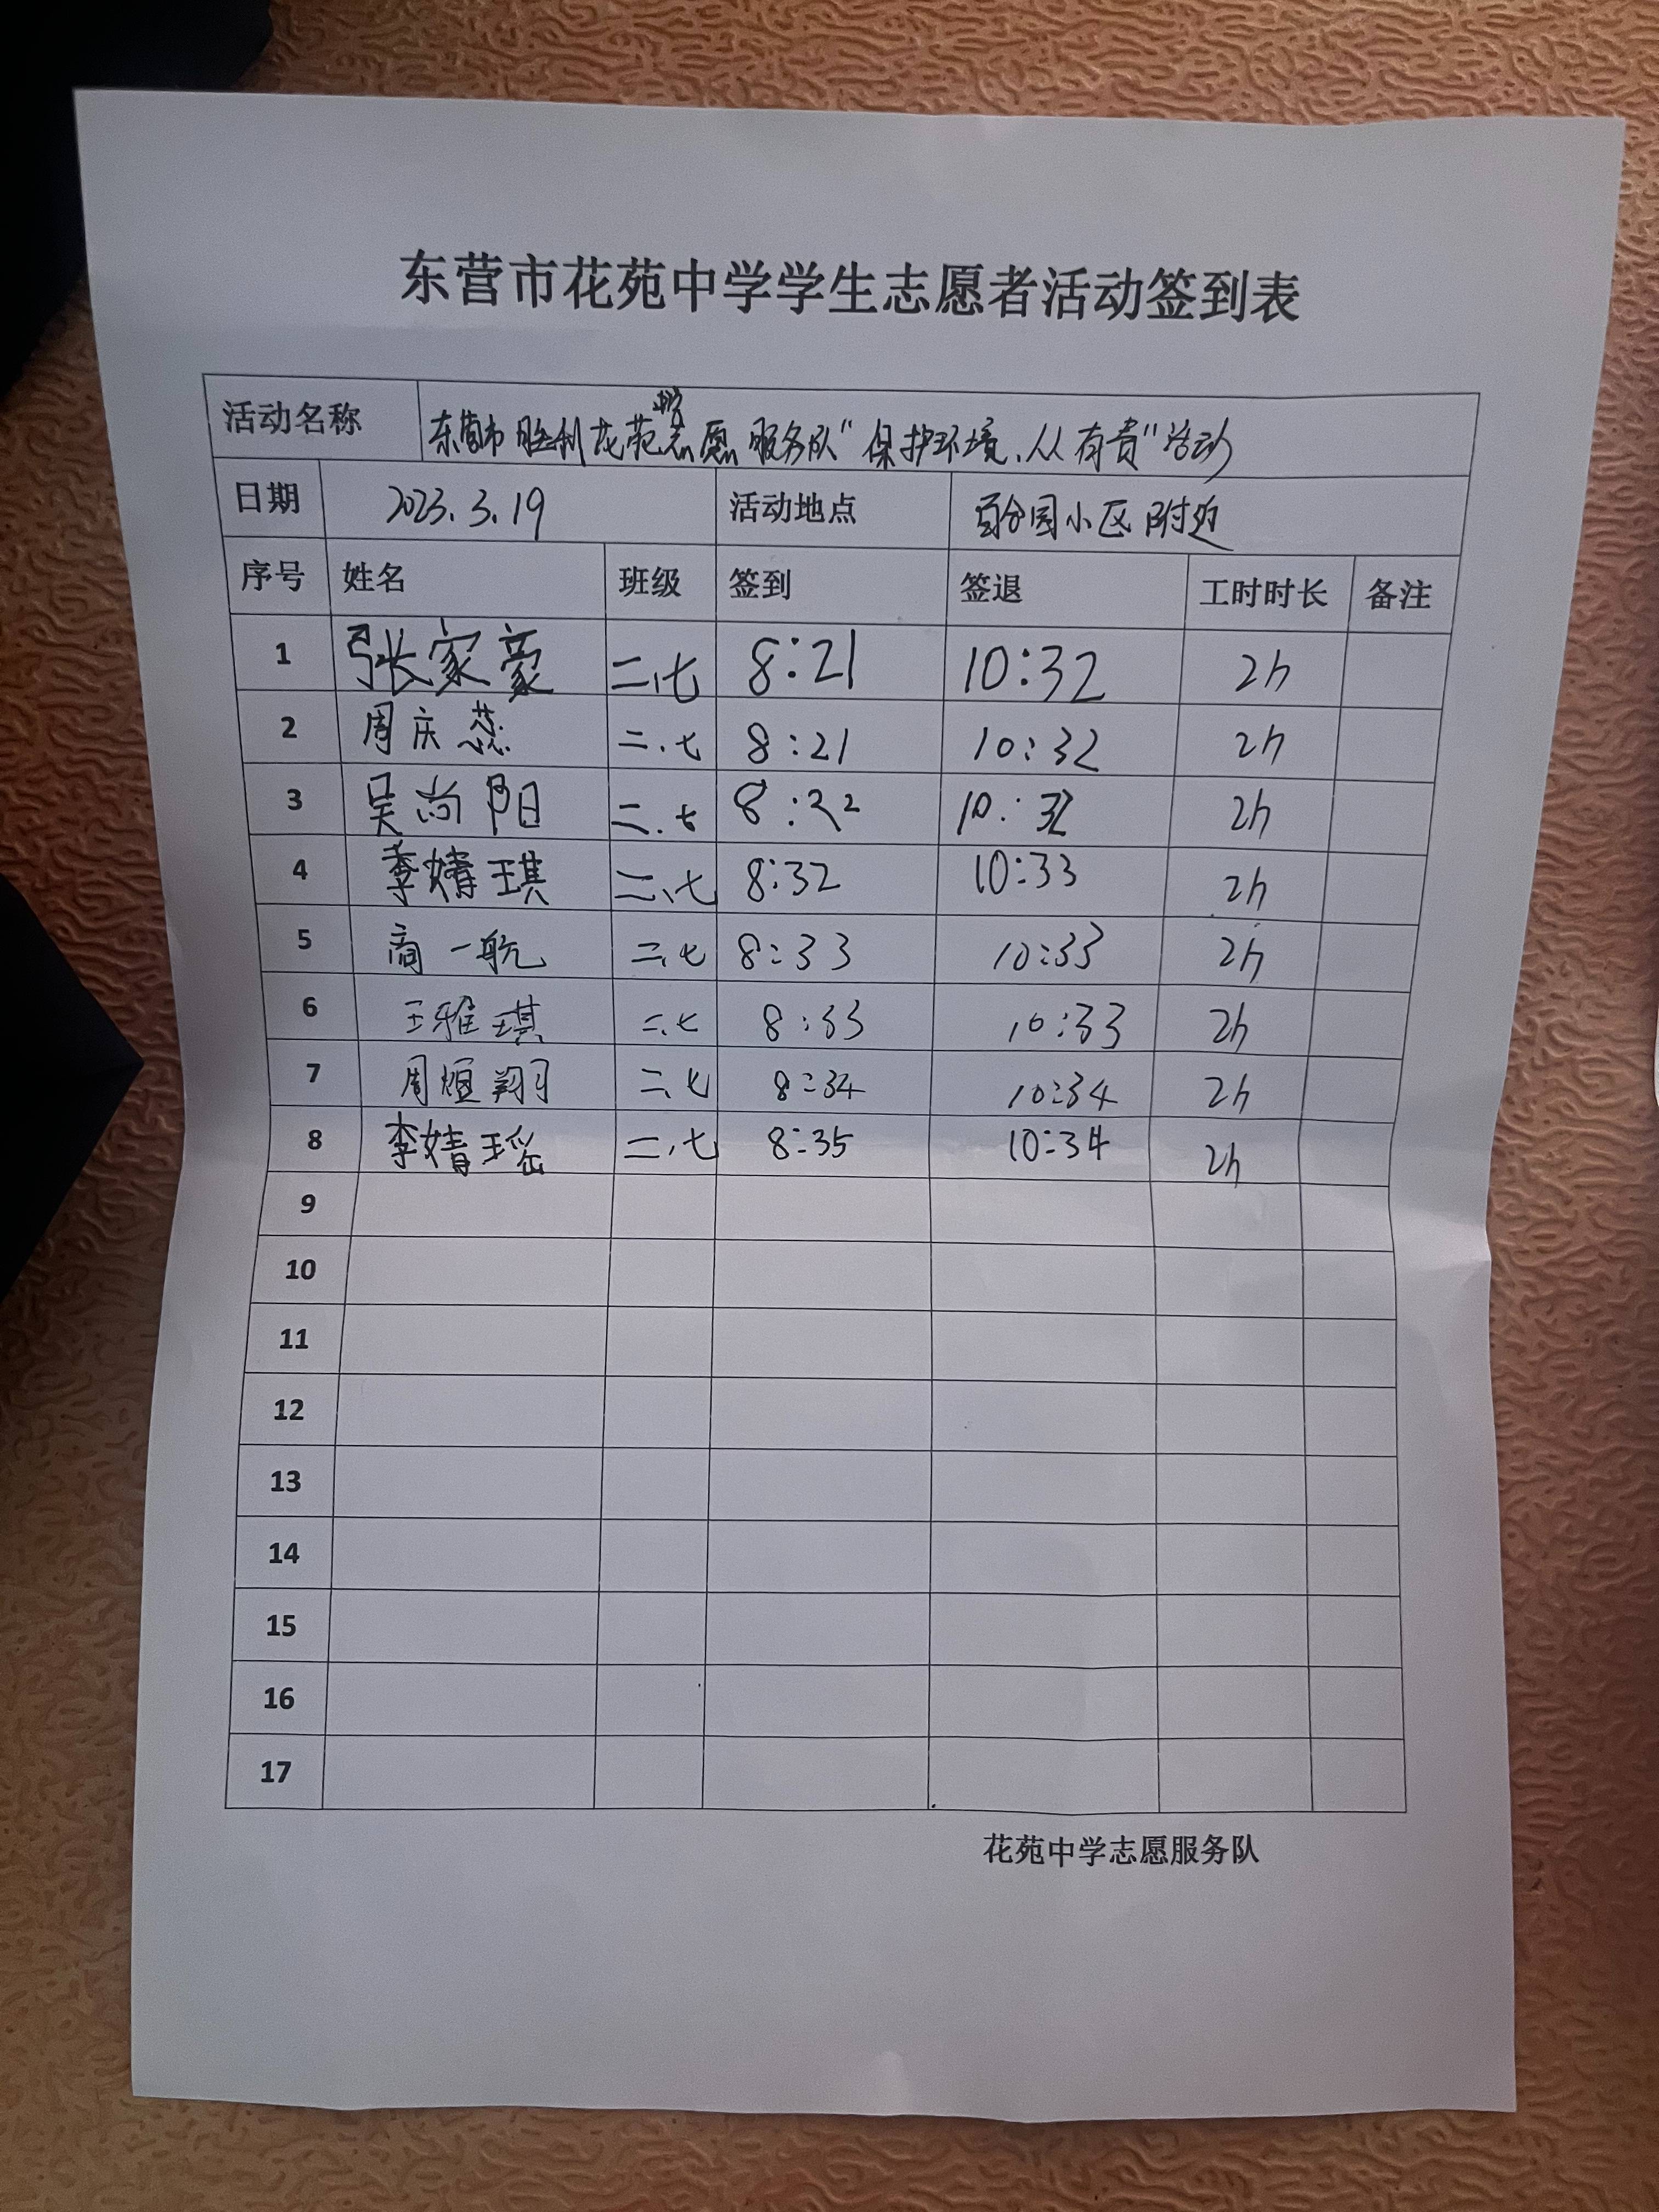 东营市花苑中学学生志愿者活动签到表
活动名称 东营市胜利花苑中学志愿服务队“保护环境、从有责”活动
日期 2023.3.19 活动地点 百合园小区附近
序号 姓名 班级 签到 签退 工时时长 备注
1 张家豪 二.七 8:21 10:32 2h
2 周庆蕊 二.七 8:21 10:32 2h
3 吴尚阳 二.七 8:22 10:32 2h
4 季婧琪 二.七 8:32 10:33 2h
5 商一航 二.七 8:33 10:33 2h
6 王雅琪 二.七 8:33 10:33 2h
7 周烜翔 二.七 8:34 10:34 2h
8 李婧瑶 二.七 8:35 10:34 2h
9
10
11
12
13
14
15
16
17
花苑中学志愿服务队